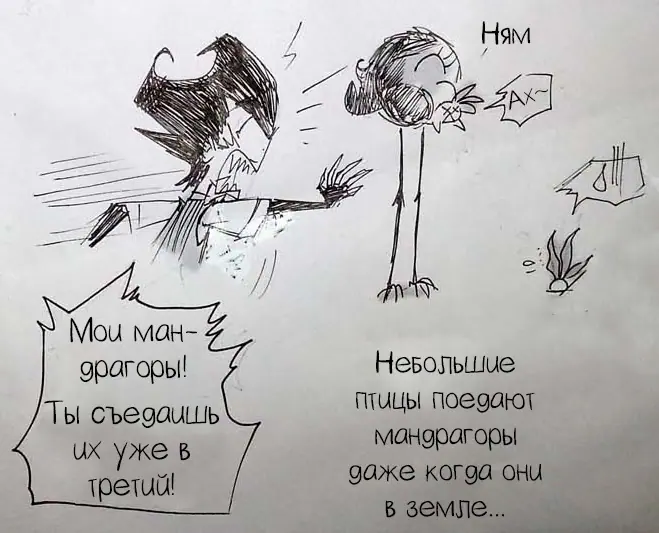 Ням
Ах~
Мои ман-
драгоры!
Ты съедаишь
их уже в
третий!
Небольшие
птицы поедают
мандрагоры
даже когда они
в земле...